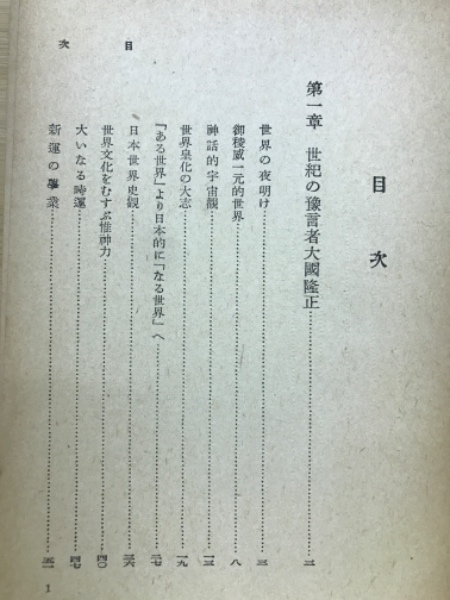 目次
目次
第一章 世紀の豫言者大國隆正……三
世界の夜明け……三
御稜威一元的世界……八
神話的宇宙觀……一三
世界皇化の大志……一九
『ある世界』より日本的に「なる世界」へ……二七
日本世界史觀……三六
世界文化をむすぶ惟神力……四〇
大いなる時運……四七
新運の肇業……五一
1